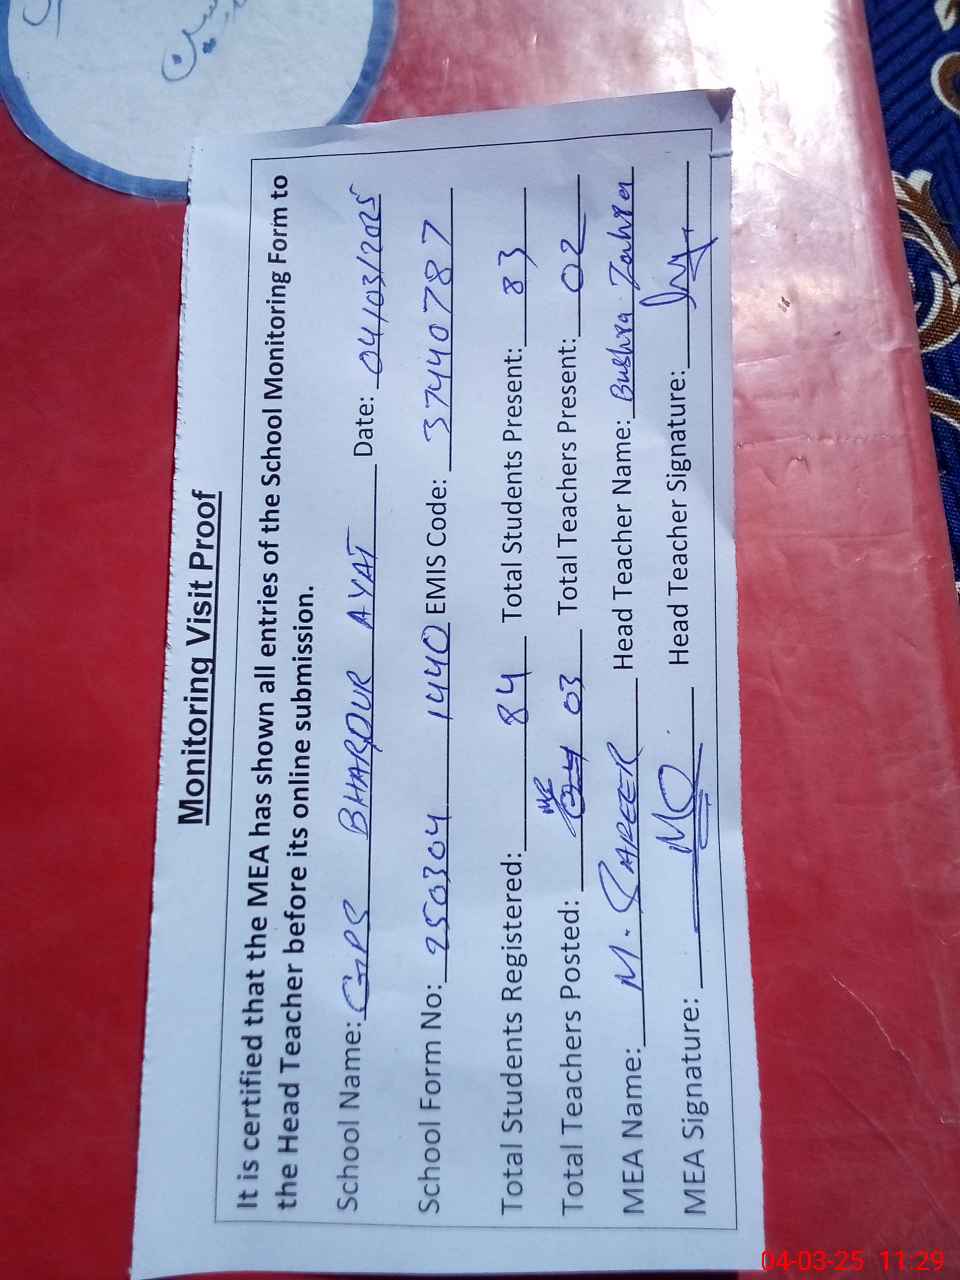 Monitoring Visit Proof
It is certified that the MEA has shown all entries of the School Monitoring Form to
the Head Teacher before its online submission.
School Name: GPS BHARPUR AYAT Date: 04/03/2025
School Form No: 250304 1440 EMIS Code: 37440787
Total Students Registered: 84 Total Students Present: 83
Total Teachers Posted: 03 Total Teachers Present: 02
MEA Name: M. Head Teacher Name: Bushra Zahra
MEA Signature: Head Teacher Signature:
04-03-25 11:29